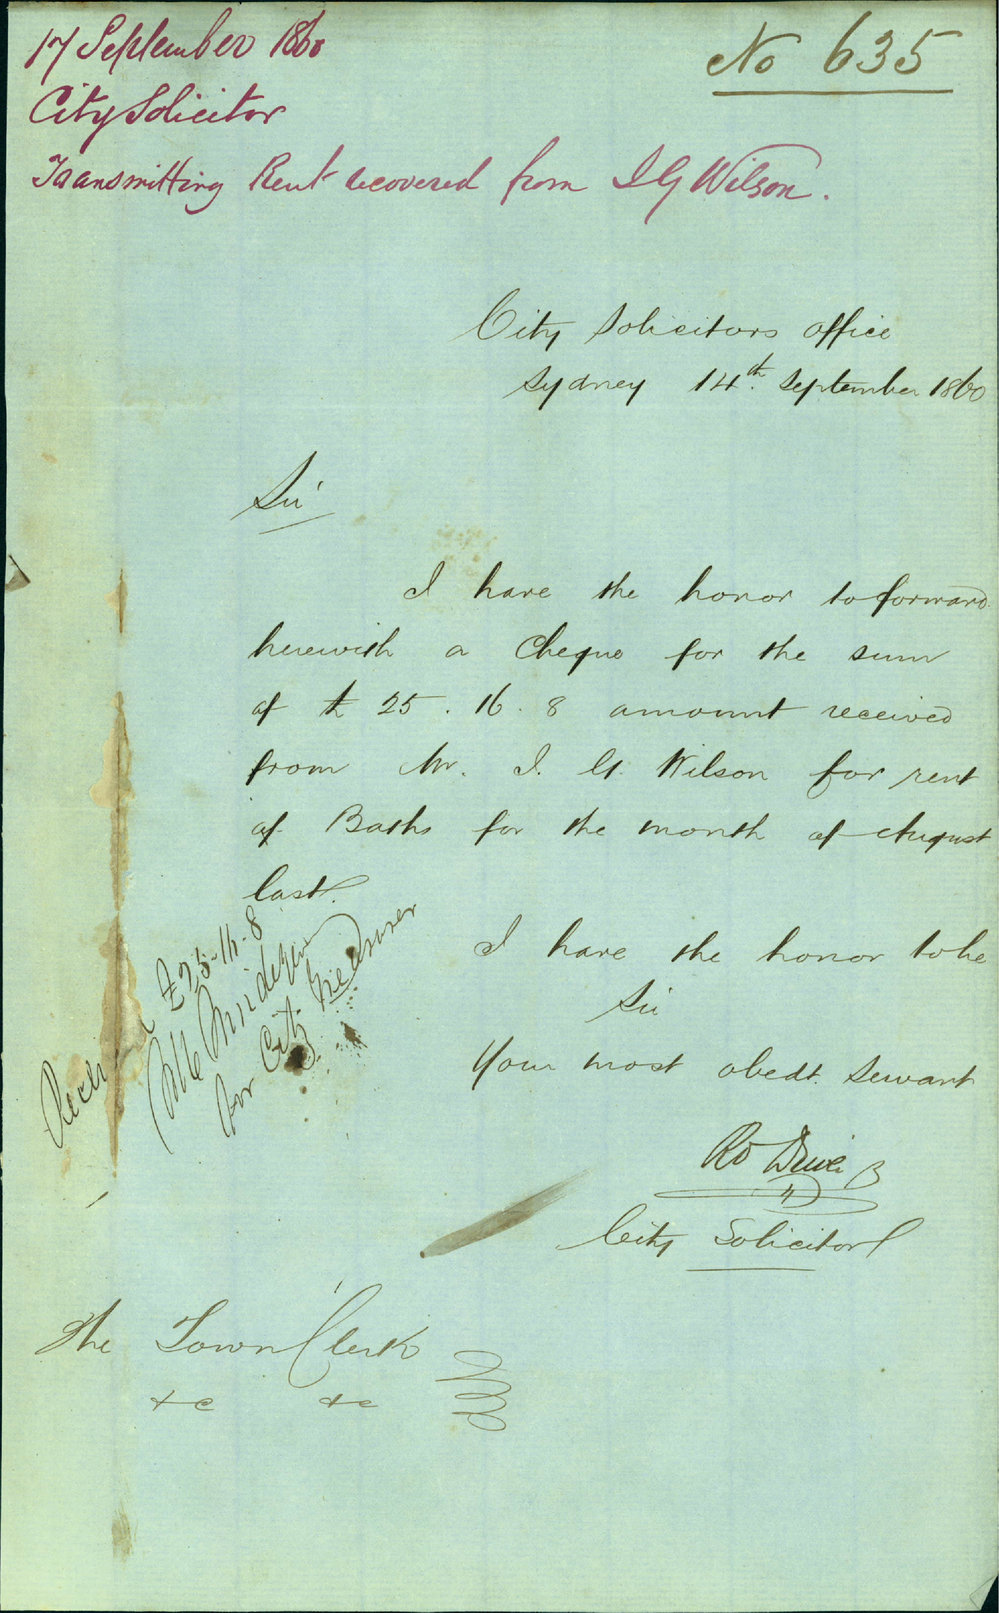 17 September 1860
No 635
City Solicitor
Transmitting Rent recovered from I G Wilson.
City Solicitors office
Sydney 14th September 1860
Sir
I have the honor to forward
herewith a Cheque for the sum
of £ 25. 16. 8 amount received
from Mr. I. G. Wilson for rent
of Baths for the month of August
last.
I have the honor to be
Sir
Your most obedt. Servant
City Solicitor
Received £25-16-8
for City Treasurer
The Town Clerk
&c &c